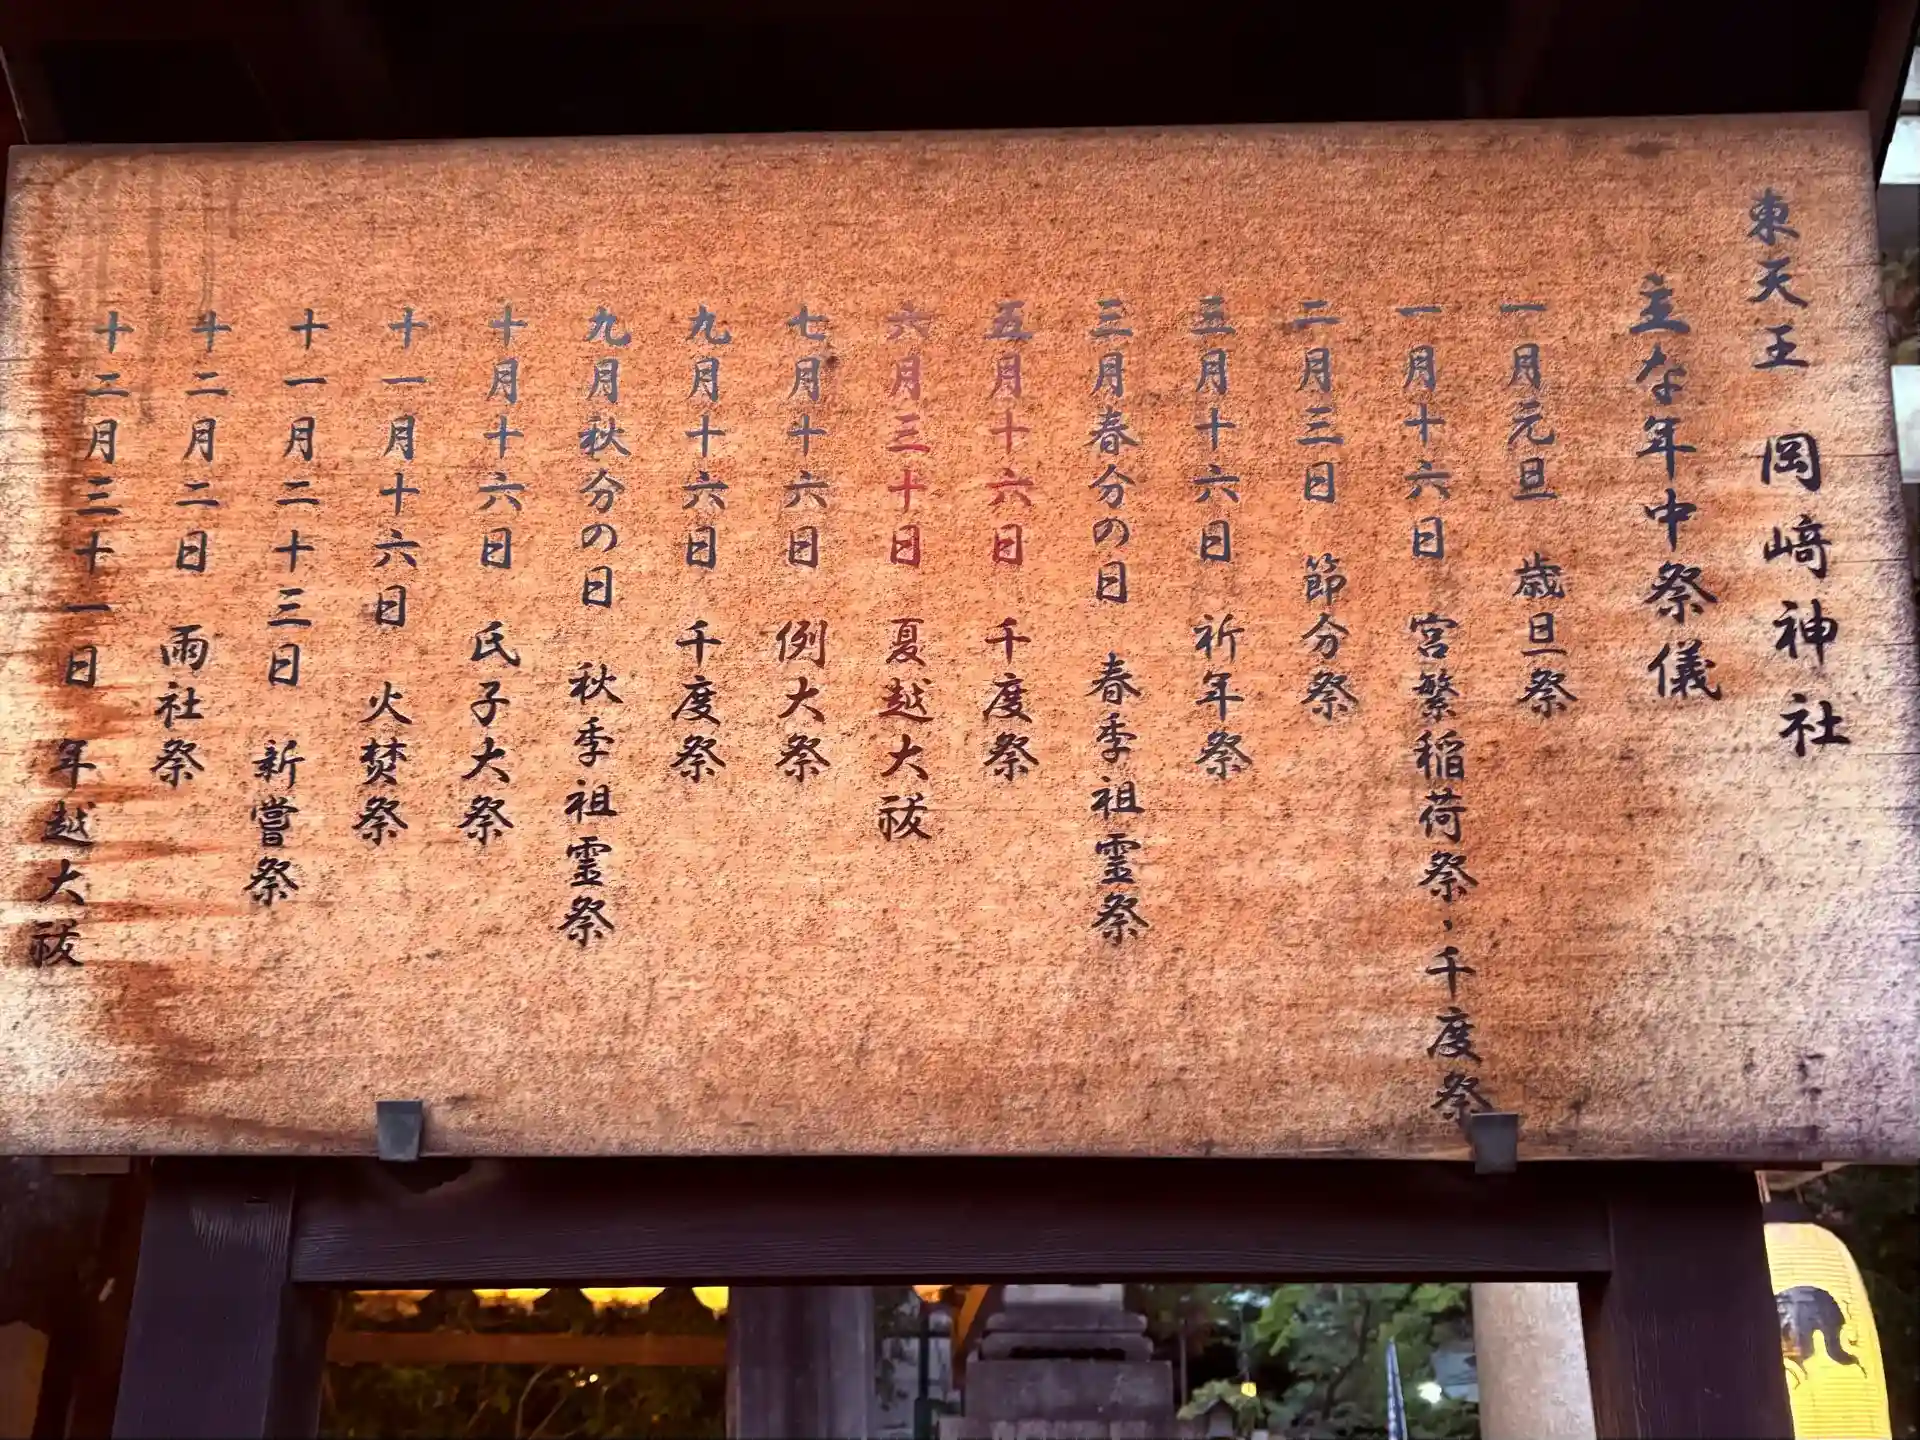 東天王 岡﨑神社
主な年中祭儀
一月元旦 歳旦祭
一月十六日 宮繁稲荷祭・千度祭
二月三日 節分祭
三月十六日 祈年祭
三月春分の日 春季祖霊祭
五月十六日 千度祭
六月三十日 夏越大祓
七月十六日 例大祭
九月十六日 千度祭
九月秋分の日 秋季祖霊祭
十月十六日 氏子大祭
十一月十六日 火焚祭
十一月二十三日 新嘗祭
十二月二日 雨社祭
十二月三十一日 年越大祓